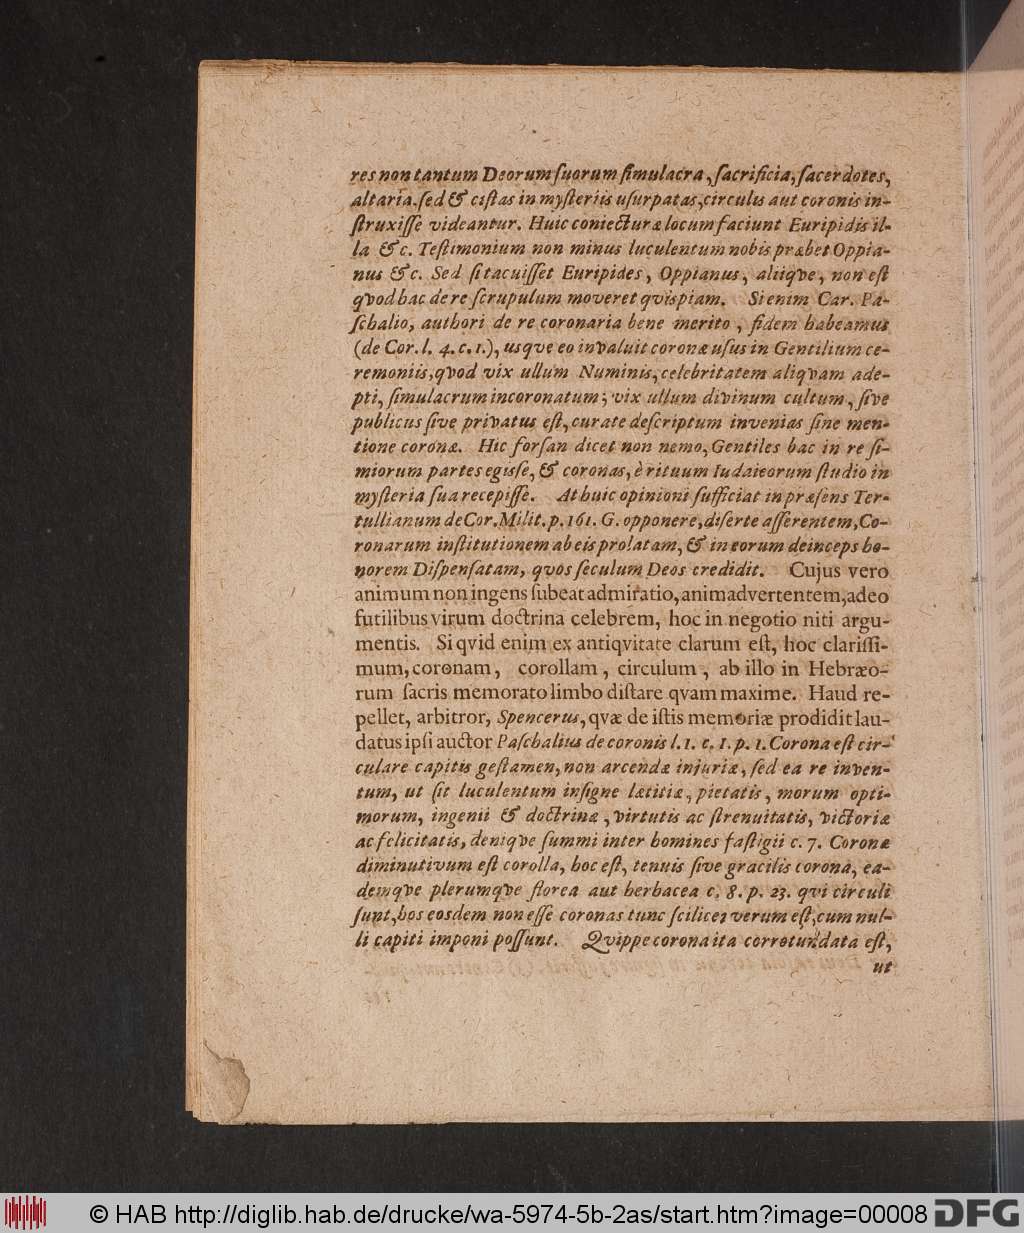 res non tantum Deorum ſuorum ſimulacra, ſacrificia, ſacerdotes,
altaria, ſed & ciſtas in myſteriis uſurpatas, circulis aut coronis in-
ſtruxiſſe videantur. Huic coniecturæ locum faciunt Euripidis il-
la &c. Teſtimonium non minus luculentum nobis præbet Oppia-
nus &c. Sed ſi tacuiſſet Euripides, Oppianus, aliiqve, non eſt
qvod hac de re ſcrupulum moveret qvispiam. Si enim Car. Pa-
ſchalio, authori de re coronaria bene merito, fidem habeamus
(de Cor. l. 4. c. 1.), usqve eo invaluit coronæ uſus in Gentilium ce-
remoniis, qvod vix ullum Numinis, celebritatem aliqvam ade-
pti, ſimulacrum incoronatum; vix ullum divinum cultum, ſive
publicus ſive privatus eſt, curate deſcriptum invenias ſine men-
tione coronæ. Hic forſan dicet non nemo, Gentiles hac in re ſi-
miorum partes egiſſe, & coronas, è rituum Iudaicorum ſtudio in
myſteria ſua recepiſſe. At huic opinioni ſufficiat in præſens Ter-
tullianum de Cor. Milit. p. 161. G. opponere, diſerte aſſerentem, Co-
ronarum inſtitutionem ab eis prolatam, & in eorum deinceps ho-
norem Diſpenſatam, quos ſeculum Deos credidit. Cujus vero
animum non ingens ſubeat admiratio, animadvertentem, adeo
futilibus virum doctrina celebrem, hoc in negotio niti argu-
mentis. Si qvid enim ex antiqvitate clarum eſt, hoc clariſſi-
mum, coronam, corollam, circulum, ab illo in Hebræo-
rum ſacris memorato limbo diſtare qvam maxime. Haud re-
pellet, arbitror, Spencerus, qvæ de iſtis memoriæ prodidit lau-
datus ipſi auctor Paſchalius de coronis l. 1. c. 1. p. 1. Corona eſt cir-
culare capitis geſtamen, non arcendæ injuriæ, ſed ea re inven-
tum, ut ſit luculentum inſigne lætitiæ, pietatis, morum opti-
morum, ingenii & doctrinæ, virtutis ac ſtrenuitatis, victoriæ
ac felicitatis, deniqve ſummi inter homines faſtigii c. 7. Coronæ
diminutivum eſt corolla, hoc eſt, tenuis ſive gracilis corona, ea-
demqve plerumqve florea aut herbacea c. 8. p. 23. qvi circuli
ſunt, hos eosdem non eſſe coronas tunc ſcilicet verum eſt, cum nul-
li capiti imponi poſſunt. Qvippe corona ita corrotundata eſt,
ut
© HAB http://diglib.hab.de/drucke/wa-5974-5b-2as/start.htm?image=00008
DFG